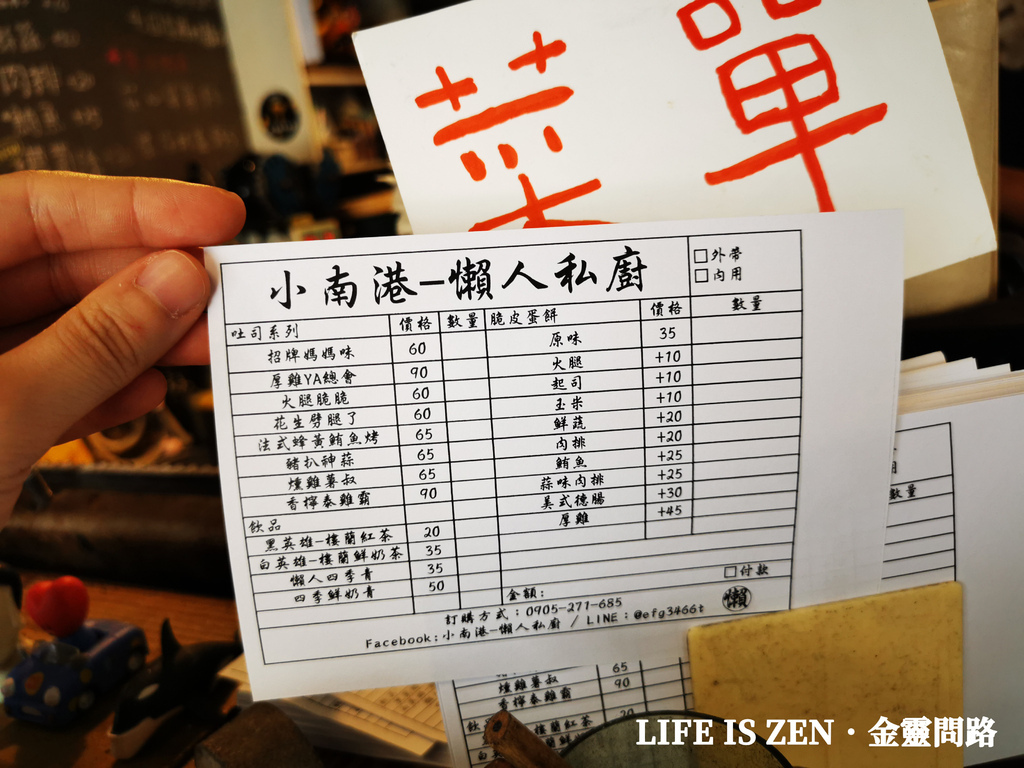 菜單
小南港-懶人私廚
□外帶
□內用
吐司系列 價格 數量
招牌媽媽味 60
厚雞YA總會 90
火腿脆脆 60
花生劈腿了 60
法式蜂黃鮪魚烤 65
豬扒神蒜 65
燻雞薯叔 65
香檸泰雞霸 90
飲品
黑英雄-樓蘭紅茶 20
白英雄-樓蘭鮮奶茶 35
懶人四季青 35
四季鮮奶青 50
脆皮蛋餅 價格 數量
原味 35
火腿 +10
起司 +10
玉米 +10
鮮蔬 +20
肉排 +20
鮪魚 +25
蒜味肉排 +25
美式德腸 +30
厚雞 +45
□付款
金額:
懶
訂購方式:0905-271-685
Facebook:小南港-懶人私廚 / LINE:@efg3466t
數量
65
燻雞薯叔 90
香檸泰雞霸
樓蘭紅茶 20
LIFE IS ZEN・金靈問路